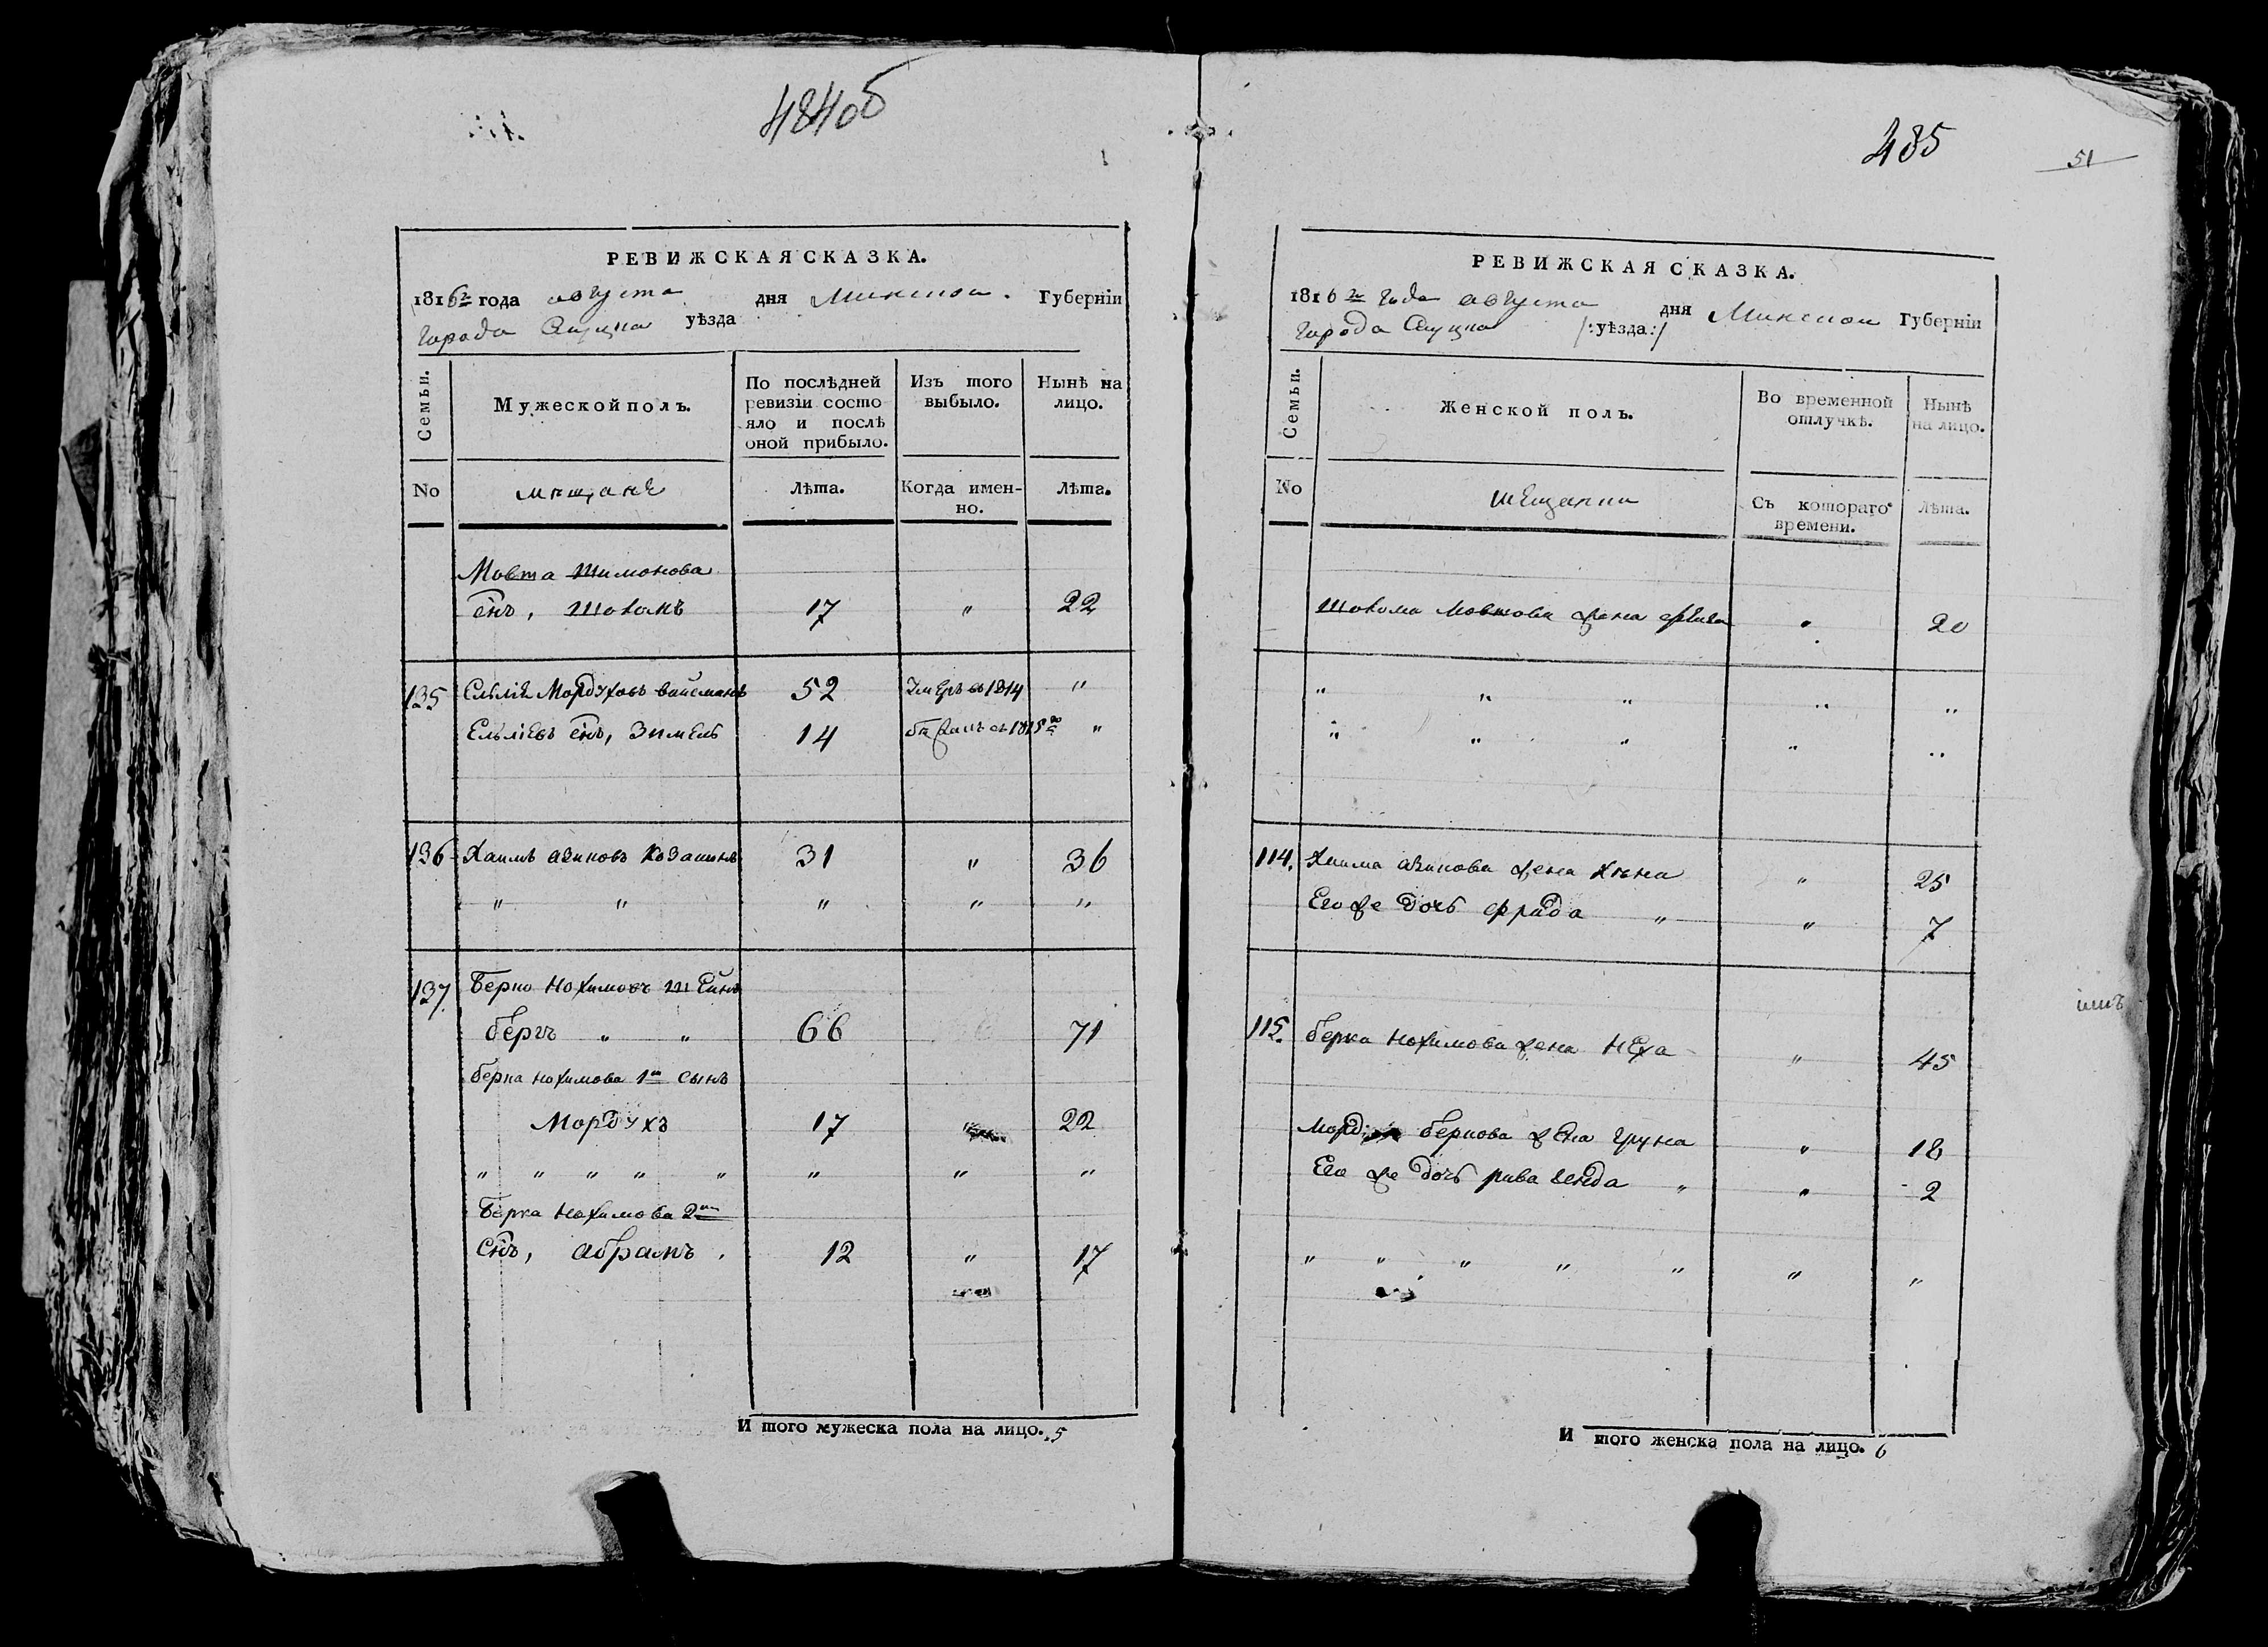 484об
РЕВИЖСКАЯ СКАЗКА.
1816го года августа дня Минской Губерніи
города Слуцка уѣзда
Семьи.
Мужеской полъ.
По послѣдней ревизіи состо
яло и послѣ оной прибыло.
Изъ того выбыло.
Нынѣ на лицо.
No
мѣщанѣ
Лѣта.
Когда имен-
но.
Лѣта.
Мовта Шимонова
снъ, Шоломъ 17 " 22
135 Ельліа Мордуховъ Вайсманъ 52 умеръ въ 1814 "
Ельліевъ снъ, Зимель 14 бежалъ въ 1815го "
136 Хаимъ Азиковъ 31 " 36
" " " " "
137 Берко Нохимовъ Шейнъ
бергъ " " 66 71
Берка Нохимова 1й сынъ
Мордухъ 17 " 22
" " " " " " " "
Берка Нохимова 2й
снъ, Абрамъ. 12 " 17
И того мужеска пола на лицо. 5
485
51
РЕВИЖСКАЯ СКАЗКА.
1816го года августа дня Минской Губерніи
города Слуцка /:уѣзда:/
Семьи.
Женской полъ.
Во временной
отлучкѣ.
Нынѣ
на лицо.
No
мещанки
Съ котораго
времени.
Лѣта.
Шолома Мовтова жена " 20
" " " " "
" " " " "
114. Хаима Азикова жена Хѣна " 25
Его же дочь Фрида " " 7
115. Берка Нохимова жена Неха " 45
Морд Беркова жена Груна " 18
Его же дочь Рива " " 2
" " " " " " "
И того женска пола на лицо. 6